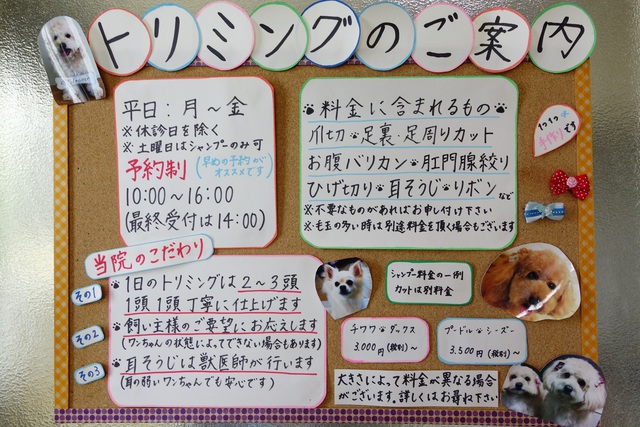 トリミングのご案内
平日：月～金
※休診日を除く
※土曜日はシャンプーのみ可
予約制 (早めの予約が
オススメです)
10:00～16:00
(最終受付は14:00)
料金に含まれるもの
爪切・足裏・足周りカット
お腹バリカン・肛門腺絞り
ひげ切り・耳そうじ・リボンなど
※不要なものがあればお申し付け下さい
※毛玉の多い時は別途料金を頂く場合もございます
1つ1つ
手作りです
当院のこだわり
その1
1日のトリミングは2～3頭
1頭1頭丁寧に仕上げます
その2
飼い主様のご要望にお応えします
(ワンちゃんの状態によってできない場合もあります)
その3
耳そうじは獣医師が行います
(耳の弱いワンちゃんでも安心です)
シャンプー料金の一例
カットは別料金
チワワ・ダックス
3,000円(税別)～
プードル・シーズー
3,500円(税別)～
大きさによって料金が異なる場合
がございます。詳しくはお尋ね下さい